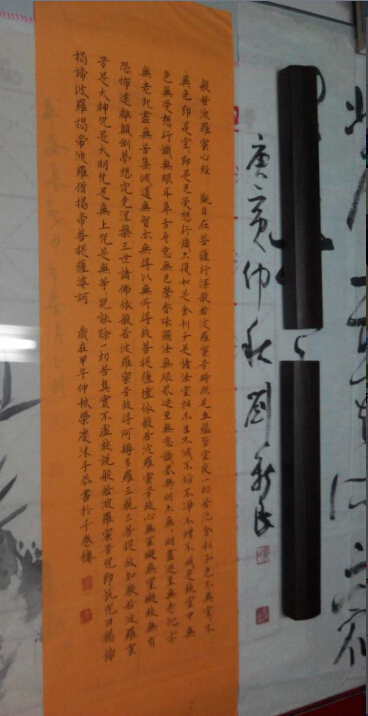 般若波羅蜜心經 觀自在菩薩行深般若波羅蜜多時照見五蘊皆空度一切苦厄舍利子色不異空空不
異色色即是空空即是色受想行識亦復如是舍利子是諸法空相不生不滅不垢不淨不增不減是故空中無
色無受想行識無眼耳鼻舌身意無色聲香味觸法無眼界乃至無意識界無無明亦無無明盡乃至無老死亦
無老死盡無苦集滅道無智亦無得以無所得故菩提薩埵依般若波羅蜜多故心無罣礙無罣礙故無有
恐怖遠離顛倒夢想究竟涅槃三世諸佛依般若波羅蜜多故得阿耨多羅三藐三菩提故知般若波羅蜜
多是大神咒是大明咒是無上咒是無等等咒能除一切苦真實不虛故說般若波羅蜜多咒即說咒曰揭諦
揭諦波羅揭帝波羅僧揭帝菩提薩婆訶 歲在甲午仲秋榮慶沐手恭書於千卷樓
庚寅仲秋劉新民